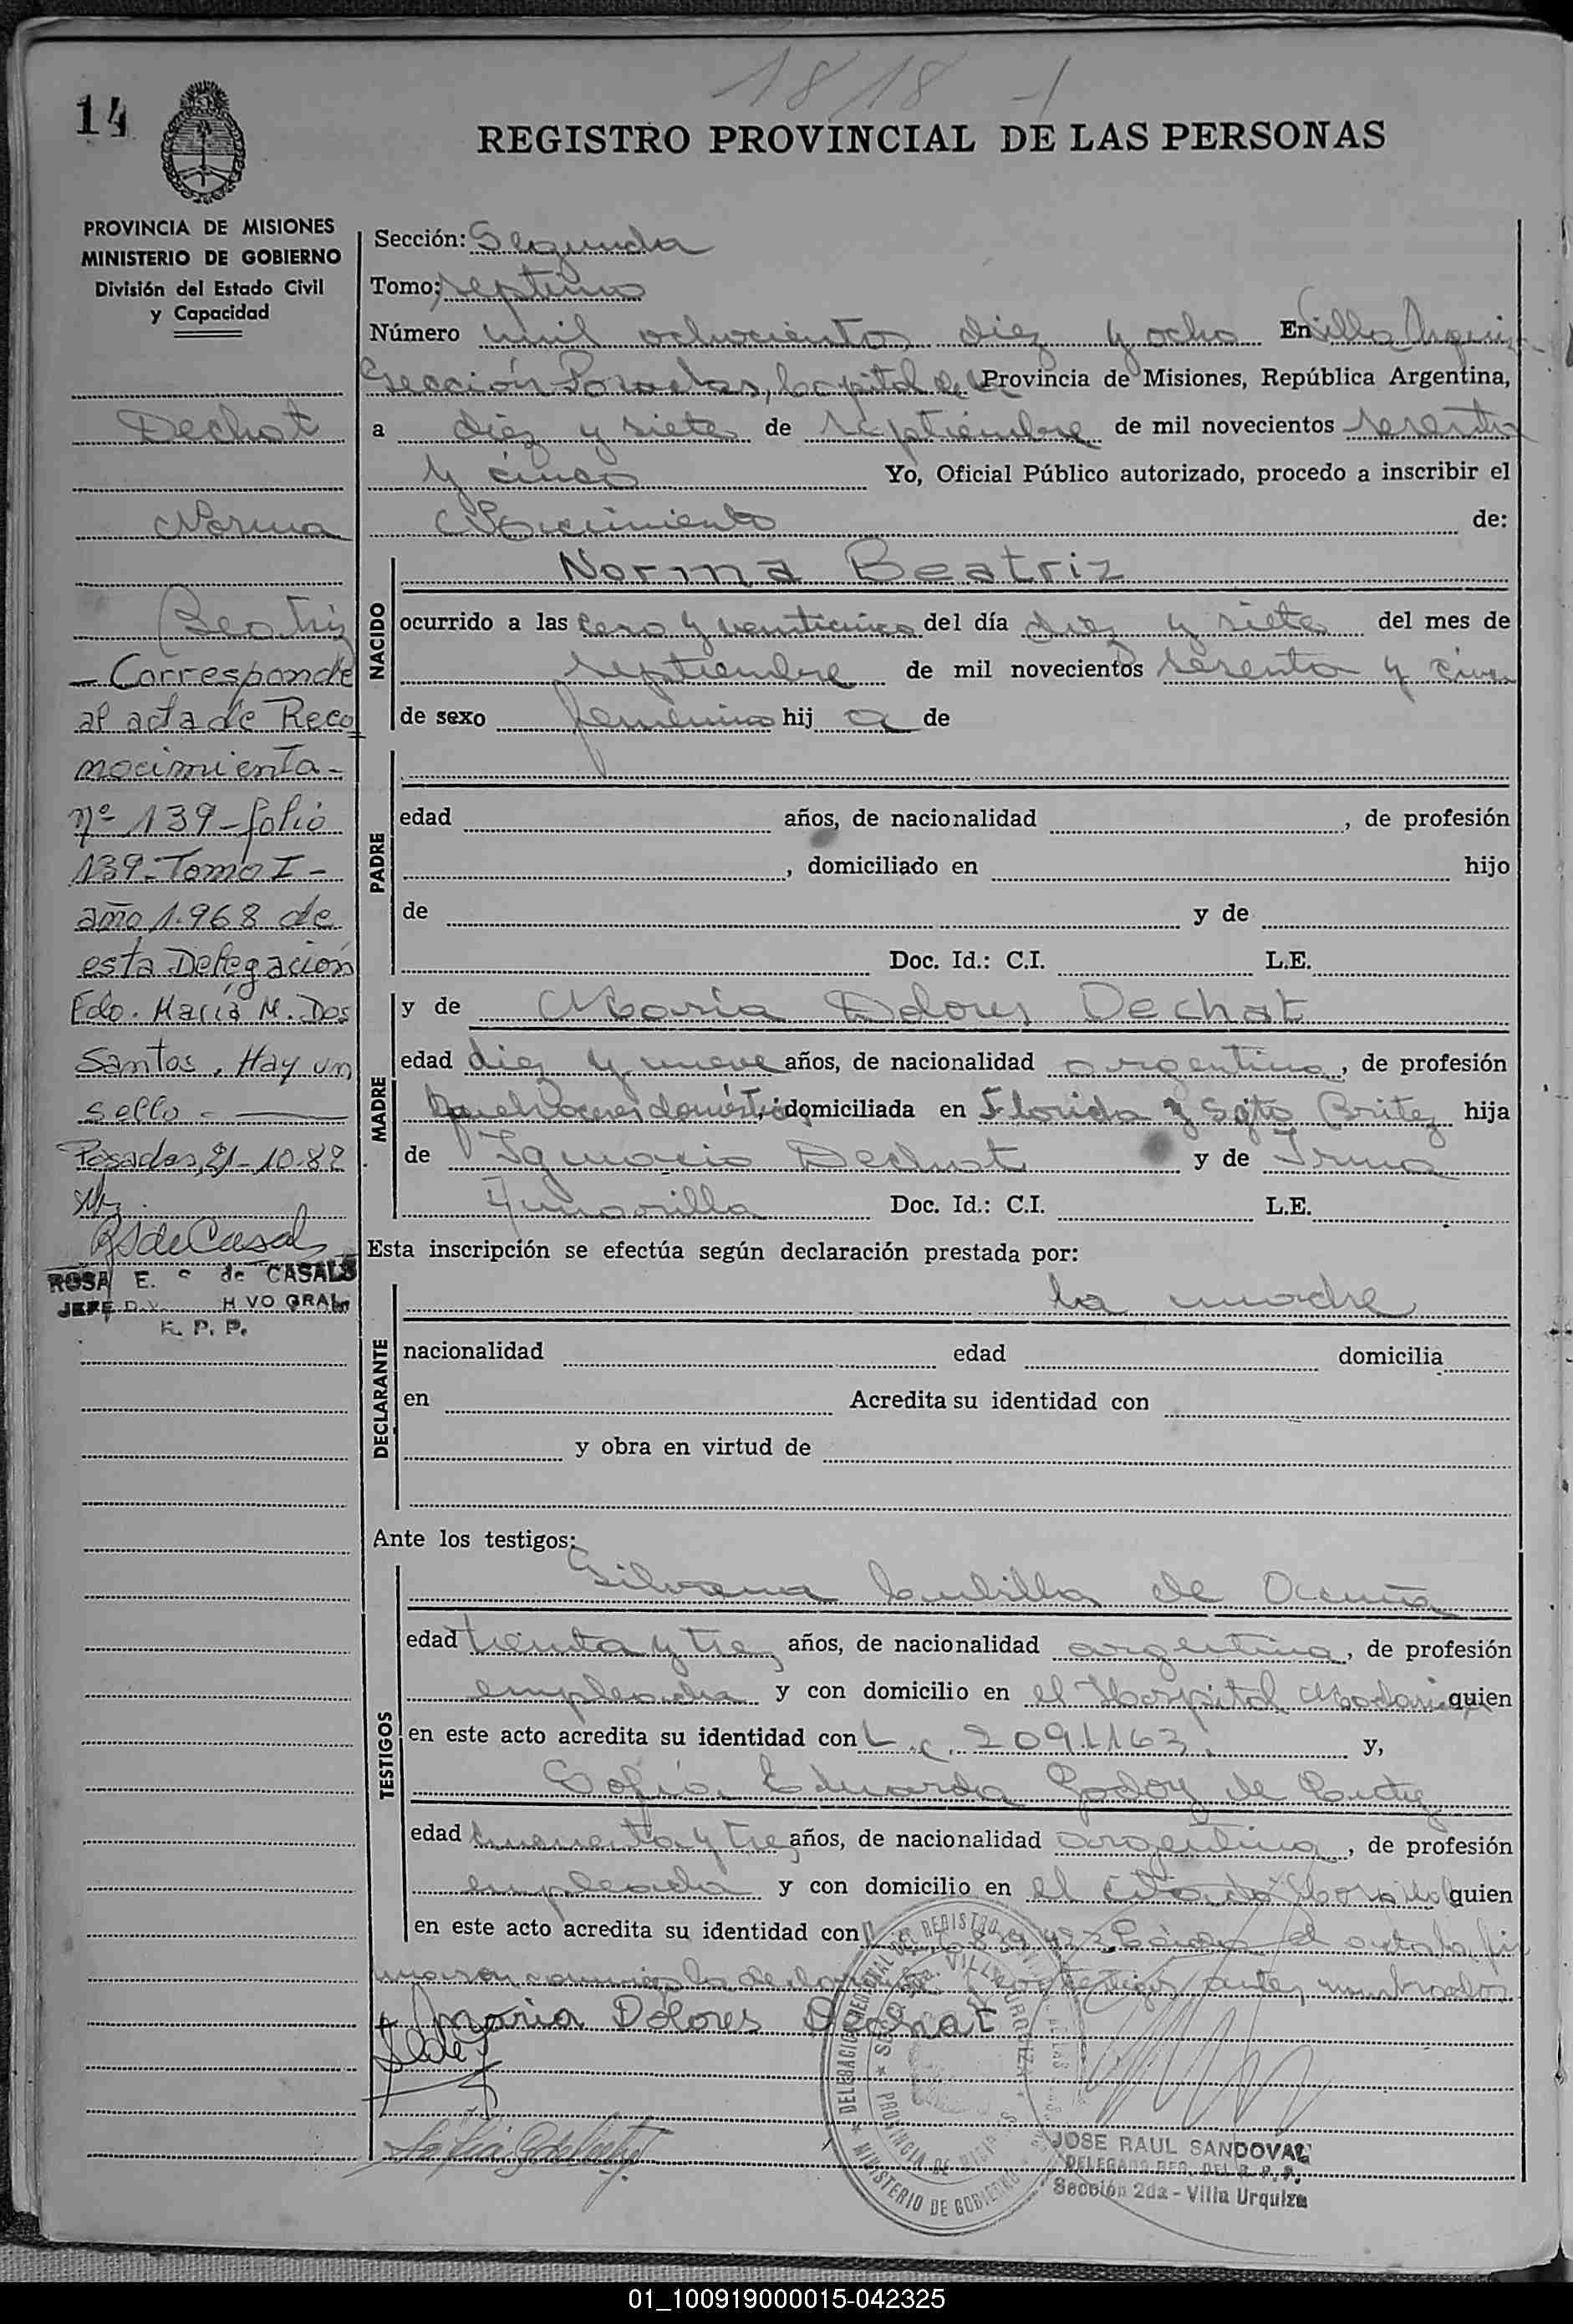 18/18 - 1
14
REGISTRO PROVINCIAL DE LAS PERSONAS
PROVINCIA DE MISIONES
MINISTERIO DE GOBIERNO
División del Estado Civil
y Capacidad
Dechat
Norma
Beatriz
- Corresponde
al acta de Reco
nocimiento -
nº 139 - folio
139 - Tomo I -
año 1.968 de
esta Delegación
Fdo. María M. Dos
Santos. Hay un
sello. -
Posadas, 21-10-82
RSdeCasals
ROSA E. S de CASALS
JEFE VO GRAL
R. P. P.
Sección: Segunda
Tomo: septimo
Número mil ochocientos diez y ocho En Villa Urquiza
Sección Posadas, Capital de la Provincia de Misiones, República Argentina,
a diez y siete de septiembre de mil novecientos sesenta
y cinco Yo, Oficial Público autorizado, procedo a inscribir el
Nacimiento de:
NACIDO
Norma Beatriz
ocurrido a las cero y veinticinco del día diez y siete del mes de
septiembre de mil novecientos sesenta y cinco
de sexo femenino hij a de
PADRE
edad años, de nacionalidad , de profesión
, domiciliado en hijo
de y de
Doc. Id.: C.I. L.E.
MADRE
y de María Dolores Dechat
edad diez y nueve años, de nacionalidad argentina, de profesión
quehaceres domésticos, domiciliada en Florida y Sgto Britez hija
de Ignacio Dechat y de Irma
Doc. Id.: C.I. L.E.
Esta inscripción se efectúa según declaración prestada por:
DECLARANTE
la madre
nacionalidad edad domicilia
en Acredita su identidad con
y obra en virtud de
Ante los testigos:
TESTIGOS
Silvana Cubilla de Acuña
edad treinta y tres años, de nacionalidad argentina, de profesión
empleada y con domicilio en el Hospital Madariaga quien
en este acto acredita su identidad con L.C. 2091163. y,
Sofía Eduarda Godoy de
edad cincuenta y tres años, de nacionalidad argentina, de profesión
empleada y con domicilio en el citado Hospital quien
en este acto acredita su identidad con el acta la fir
maron conmigo la declarante y los testigos antes nombrados
Maria Dolores Dechat
DELEGACION REGIONAL DEL REGISTRO PROVINCIAL DE LAS PERSONAS
SECCION 2da. VILLA URQUIZA
PROVINCIA DE MISIONES
MINISTERIO DE GOBIERNO
JOSE RAUL SANDOVAL
DELEGADO REG. DEL R. P. P.
Sección 2da - Villa Urquiza
01_100919000015-042325